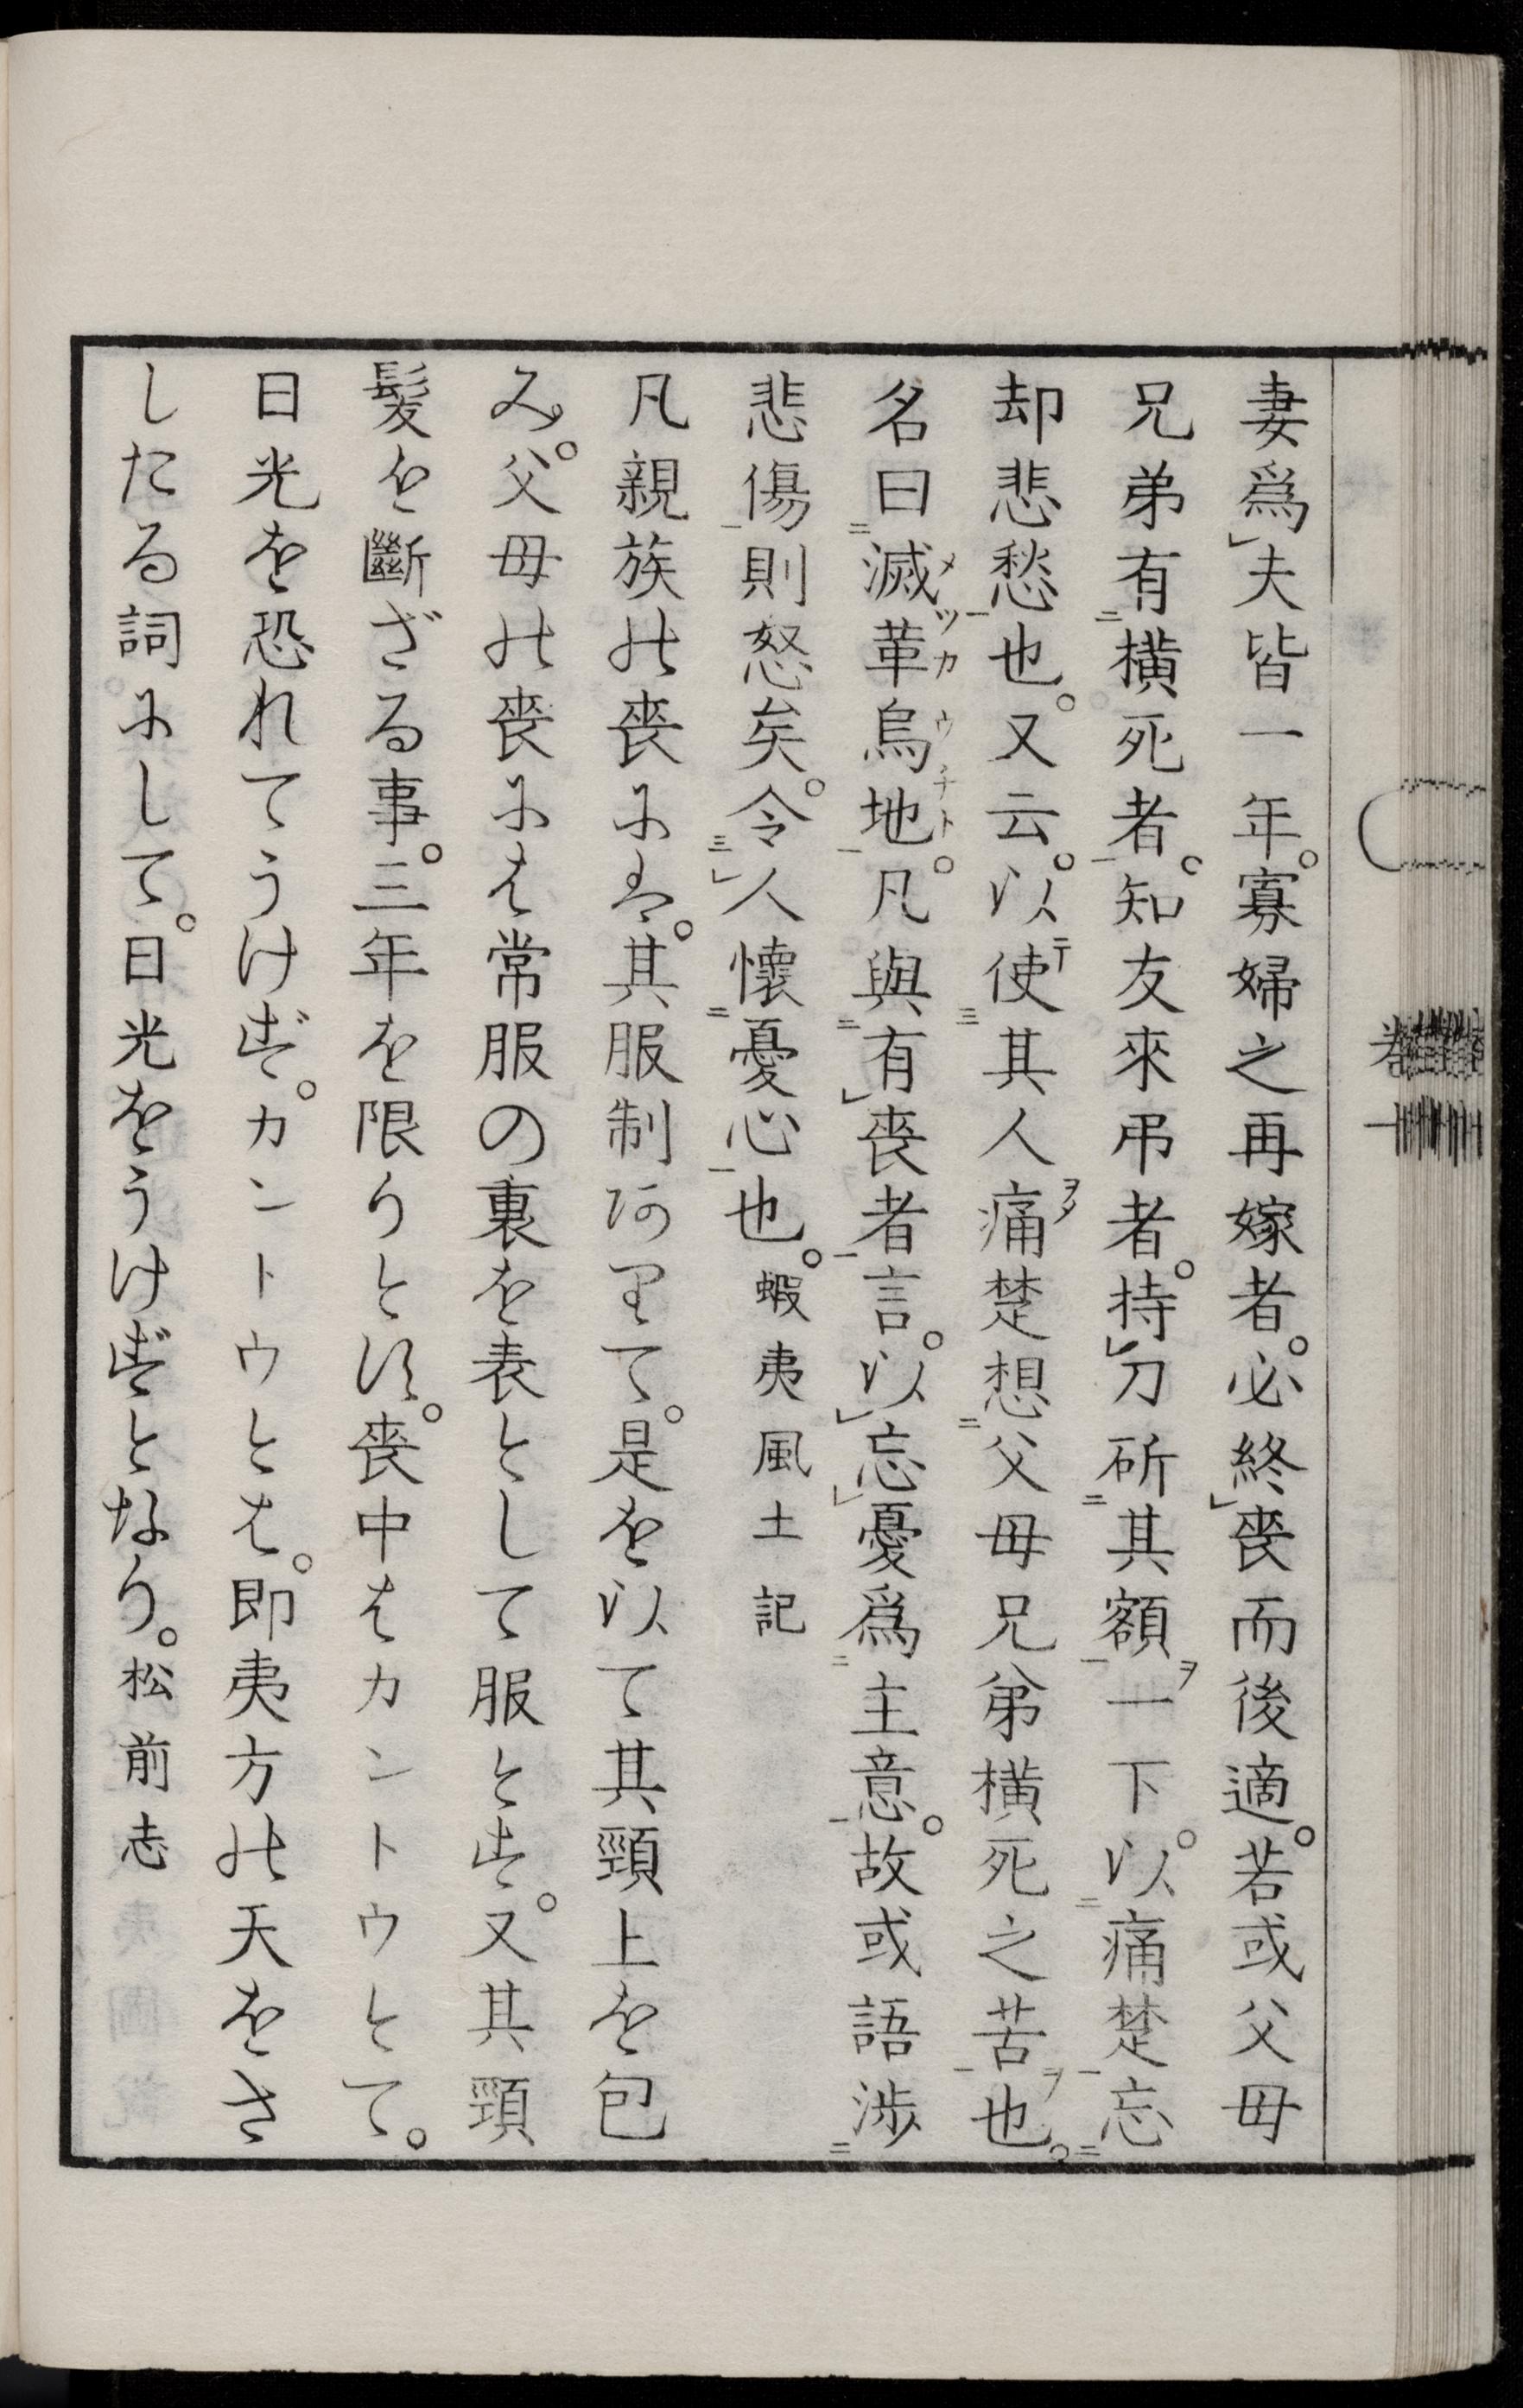 妻爲夫皆一年。寡婦之再嫁者。必終喪而後適。若或父母
兄弟有橫死者。知友來弔者。持刀斫其額一下。以痛楚忘
却悲愁也。又云。以使其人痛楚想父母兄弟橫死之苦也。
名曰滅革烏地。凡與有喪者言。以忘憂爲主意。故或語涉
悲傷則怒矣。令人懷憂心也。蝦夷風土記
凡親族の喪にハ。其服制ありて。是を以て其頸上を包
み。父母の喪にハ常服の裏を表として服とす。又其頸
髮を斷ざる事。三年を限りとす。喪中ハカントウとて。
日光を恐れてうけず。カントウとハ。即夷方の天をさ
したる詞にして。日光をうけずとなり。松前志
卷一